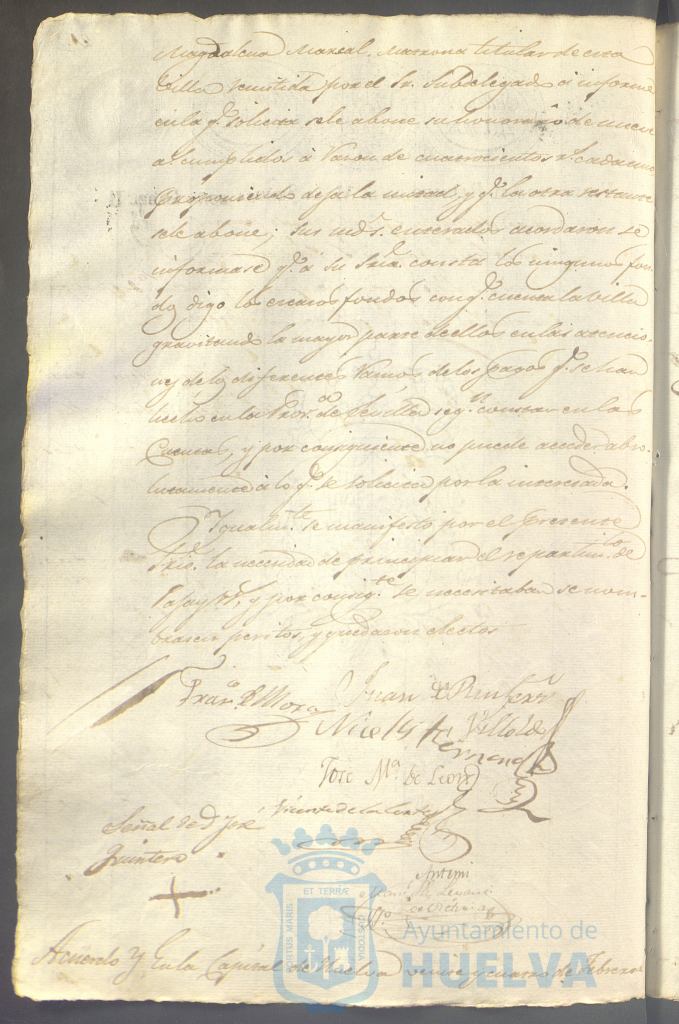 Magdalena Marcal, Matrona titular de esta
Villa remitida por el Sr. Subdelegado á informe
en la q.e solicita se le abone su honorario de
a.s cumplidos á razon de cuatrocientos r.s cada uno
proponiendo deja la mitad, y q.e la otra restante
se le abone; sus mds. enterados acordaron se
informase q.e á su Sría. consta los ningunos fon-
dos, digo los escasos fondos con q.e cuenta la Villa
gravitando la mayor parte de ellos en las atencio-
nes de los diferentes ramos de los pagos q.e se han
hecho en la Prov.a de Sevilla seg.n constan en las
Cuentas, y por consiguiente no puede acceder abso-
lutamente á lo q.e se solicita por la interesada.
Igualm.te se manifestó por el presente
Srio. la necesidad de principiar el repartim.to de
Paja y , y por consig.te se necesitaban se nom-
brasen peritos, y quedaron electos
Fran.co de Mora Juan de
Nicolas Villalde
Hernand
Jose M.a de Leon
Vicente de la Corte
Señal de D. José
Quintero
+
Antemi
Acuerdo Y En la Capital de Huelva veinte y cuatro de Febrero
ET TERRÆ
PORTUS MARIS
CUSTODIA
Ayuntamiento de
HUELVA